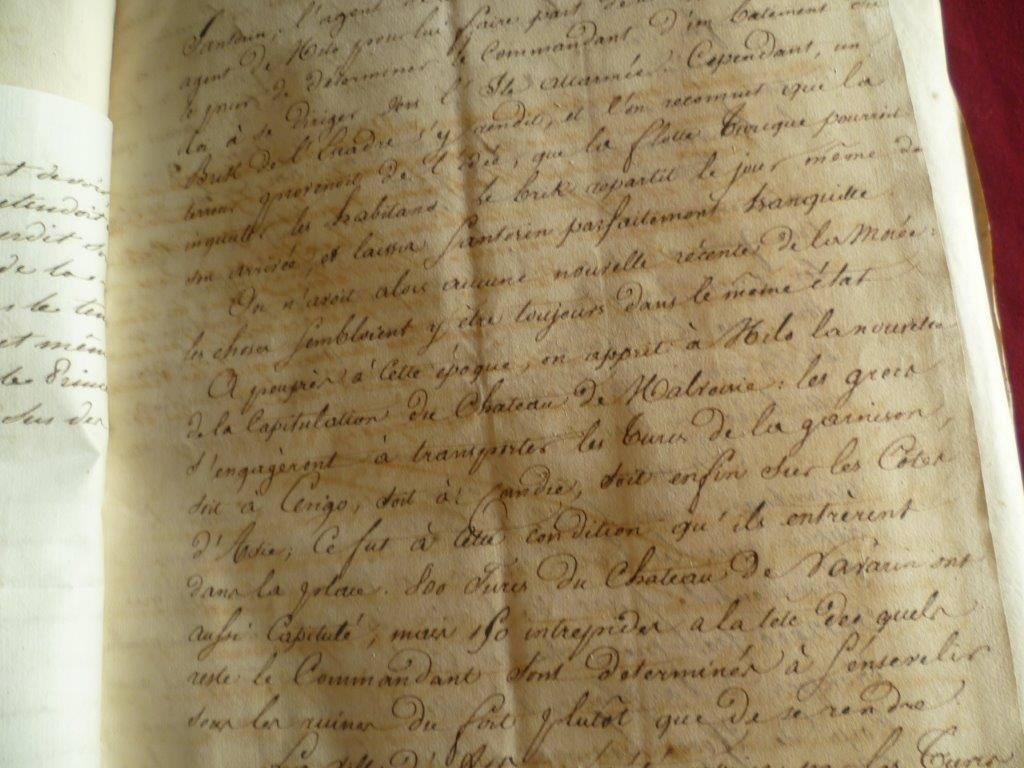 t de
étendoit
perdit
de la
s le
et mêm
le Prim
Sus des
Santorin; l'agent
agent de Milo pour lui faire part de
le prier de déterminer le Commandant d'un batiment du
Roi à se diriger vers l'Ile allarmée. Cependant, un
Brik de l'Escadre s'y rendit, et l'on reconnut que la
terreur provenoit de l'idée, que la flotte Turcque pourroit
inquiéter les habitans. Le brik repartit le jour même de
son arrivée, et laissa Santorin parfaitement tranquille
On n'avoit alors aucune nouvelle récente de la Morée:
les choses sembloient y être toujours dans le même état
A peuprès à Cette époque, on apprit à Milo la nouvelle
de la Capitulation du Chateau de Malvoisie: les grecs
s'engagèrent à transporter les Turcs de la garnison,
soit à Cerigo, soit à Candie, soit enfin sur les Cotes
d'Asie; Ce fut à cette condition qu'ils entrèrent
dans la place. 800 Turcs du Chateau de Navarin ont
aussi Capitulé, mais 150 intrepides a la tête des quels
reste le Commandant sont déterminés à s'ensevelir
sous les ruines du fort plutôt que de se rendre.
les Turcs